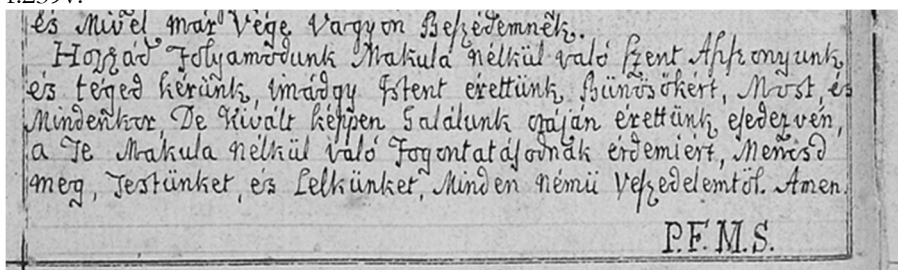 f.239v.
és Mivel már Vége Vagyon Beſzedemnek.
Hozzád Folyamodunk Makula nélkül való ſzent Aſſzonyunk,
és téged kérünk, imádgy Iſtent érettünk, Bünösökért, Most, és
Mindenkor, De Kivált képpen Halálunk oráján érettünk eſedezvén,
a Te Makula nélkül való Fogontatáſodnak érdemiért, Mencsd
meg, Testünket, és Lelkünket, Minden némü Veſzedelemtöl. Amen.
P.F.M.S.